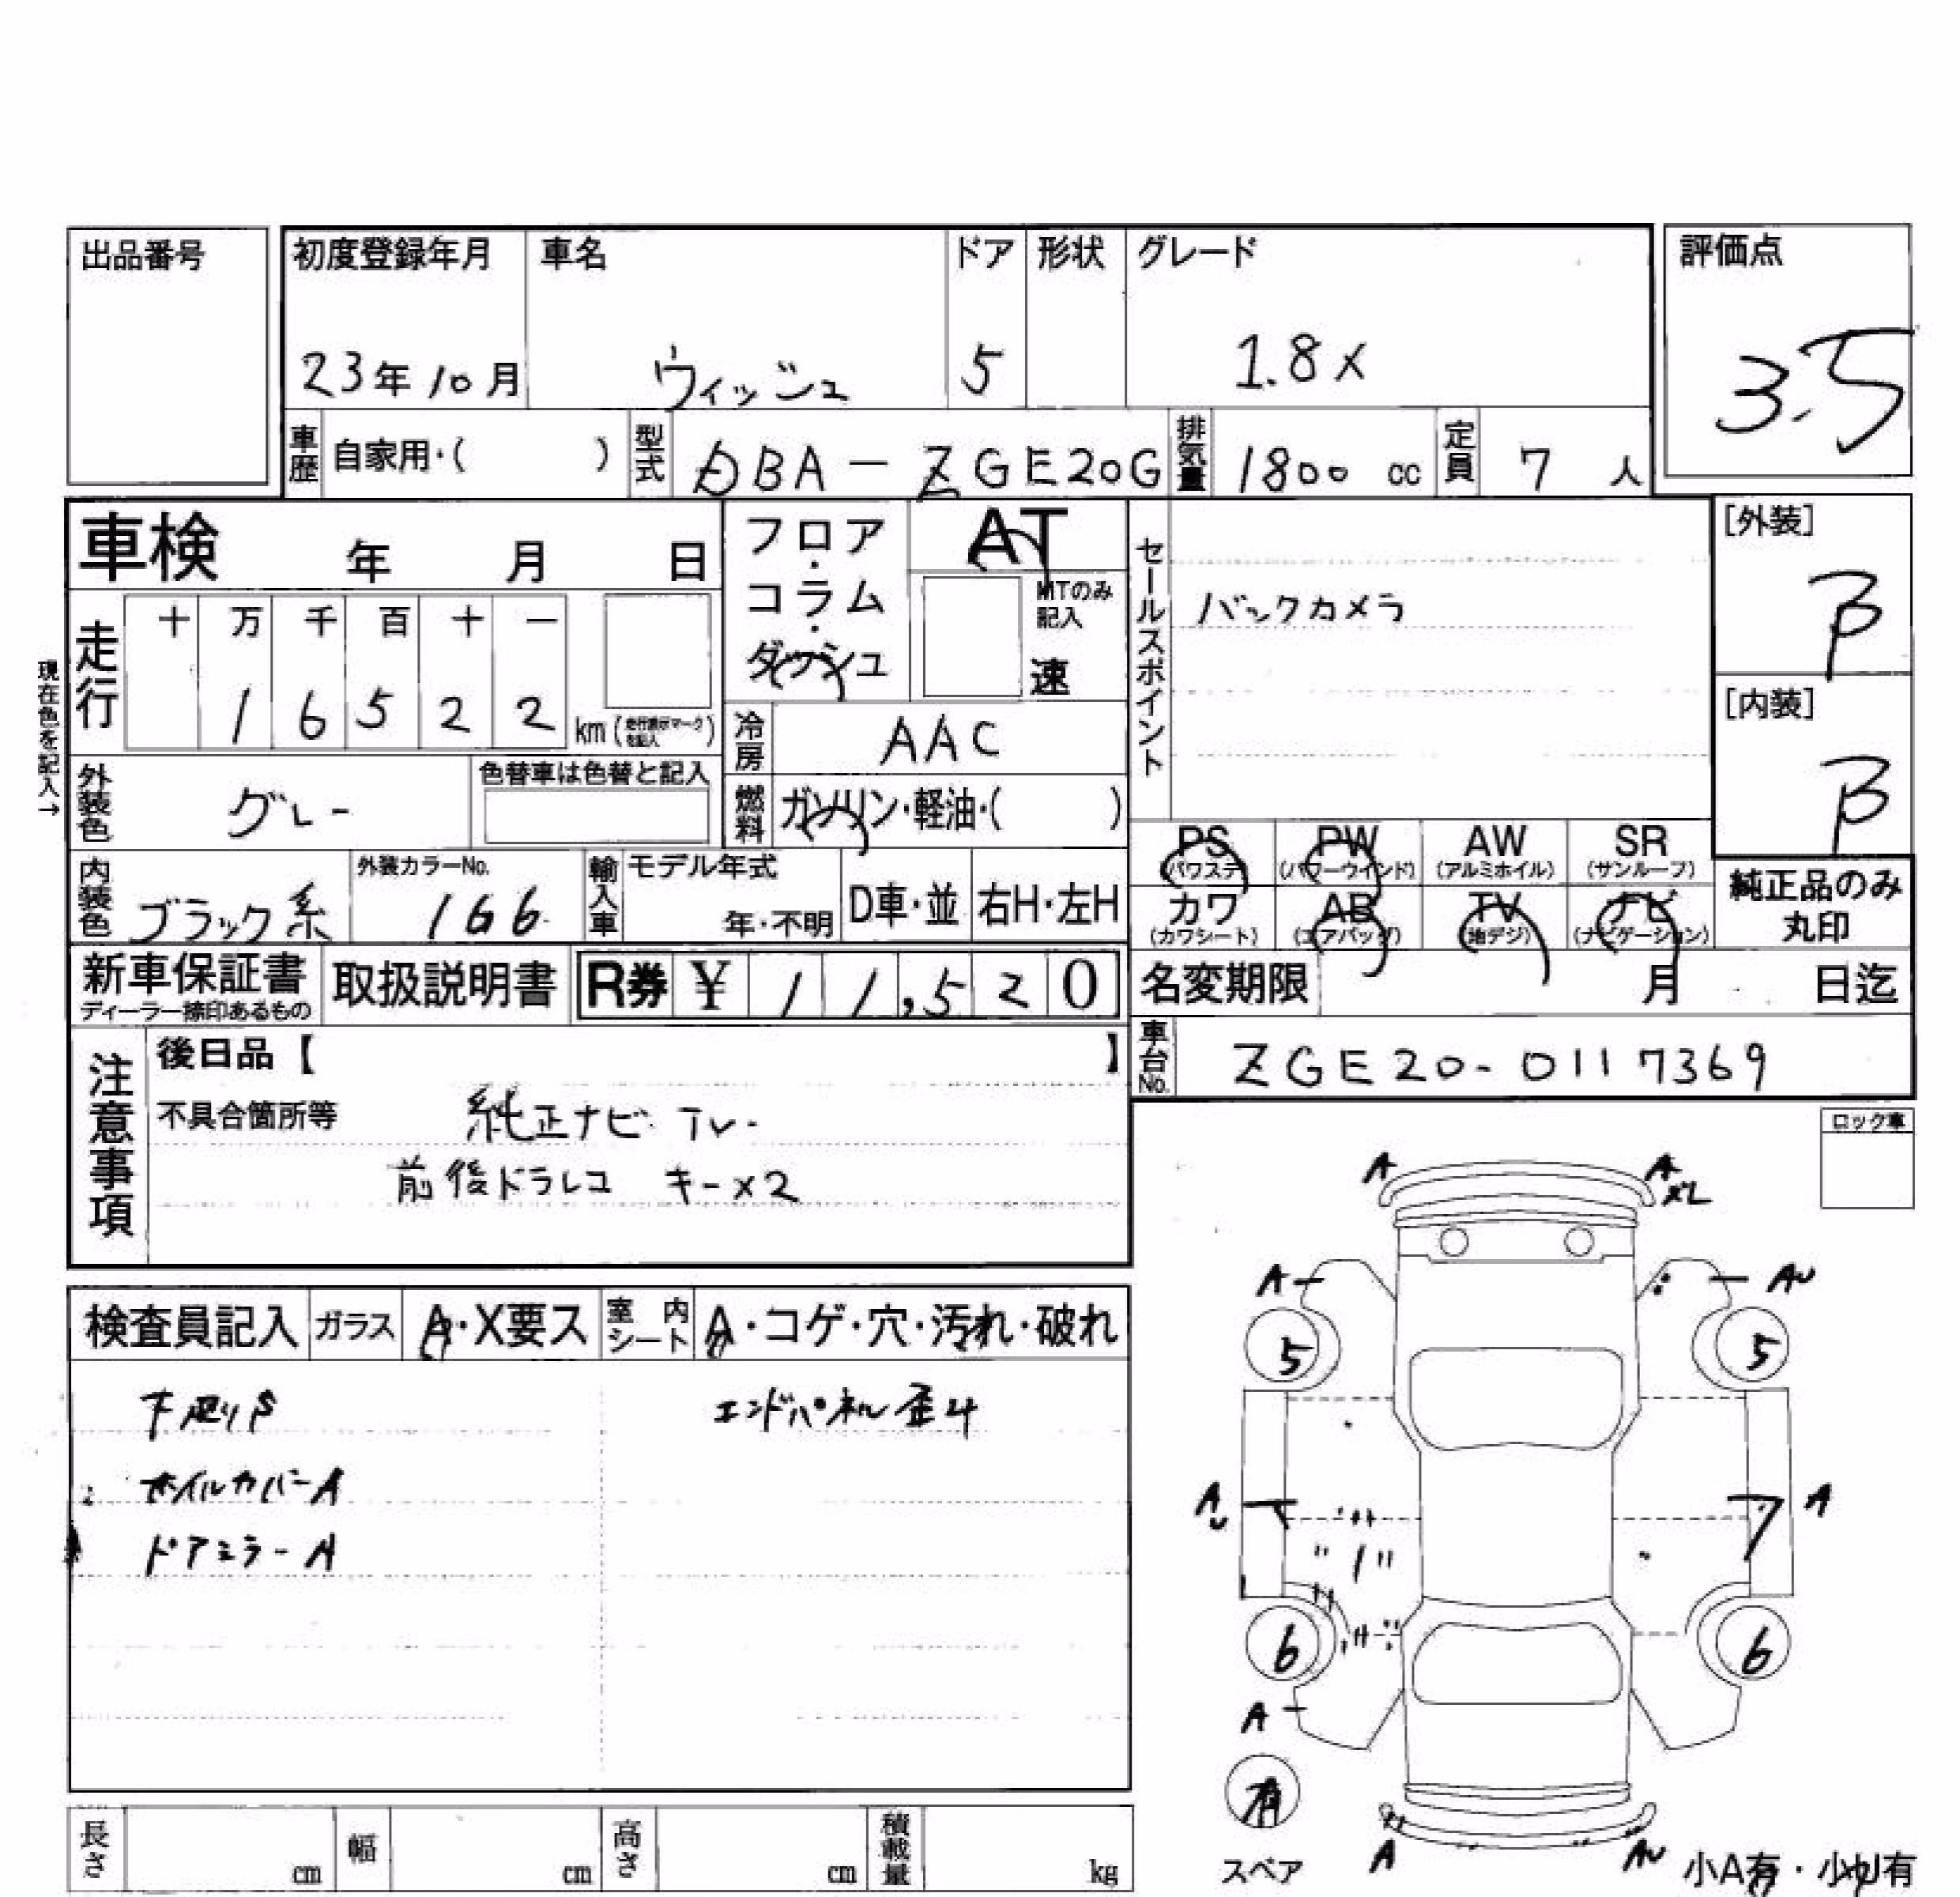 出品番号
初度登録年月 車名 ドア 形状 グレード 評価点
23年10月 ウィッシュ 5 1.8X 3.5
車歴 自家用・( ) 型式 DBA-ZGE20G 排気量 1800 cc 定員 7 人
車検 年 月 日
フロア・コラム・ダッシュ
AT
MTのみ記入
速
セールスポイント
バックカメラ
[外装] B
[内装] B
現在色を記入→
走行 十 万 千 百 十 一
1 6 5 2 2 km(走行表示マークを記入)
冷房 AAC
外装色 グレー 色替車は色替と記入
燃料 ガソリン・軽油・( )
内装色 ブラック系 外装カラーNo. 1G6 輸入車 モデル年式 年・不明 D車・並 右H・左H
PS (パワステ) PW (パワーウインド) AW (アルミホイル) SR (サンルーフ)
カワ (カワシート) AB (エアバッグ) TV (地デジ) ナビ (ナビゲーション)
純正品のみ丸印
新車保証書 ディーラー捺印あるもの 取扱説明書 R券 ¥ 11,520
名変期限 月 日迄
車台No. ZGE20-0117369
注意事項
後日品【 】
不具合箇所等 純正ナビ TV-
前後ドラレコ キー×2
ロック車
検査員記入 ガラス A・X要ス 室内シート A・コゲ・穴・汚れ・破れ
下廻りS エンドパネル歪み
ホイルカバーA
ドアミラーA
A A
XL
A AU
5 5
AU A
6 6
A
有
スペア
A AU
小A有・小U有
長さ cm 幅 cm 高さ cm 積載量 kg